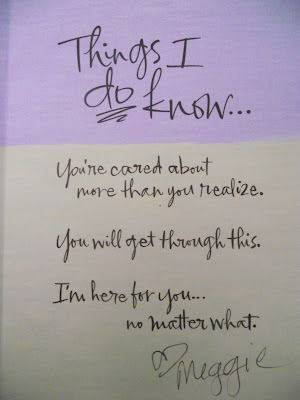 Things I
do know...
You're cared about
more than you realize.
You will get through this.
I'm here for you...
no matter what.
♡ Meggie